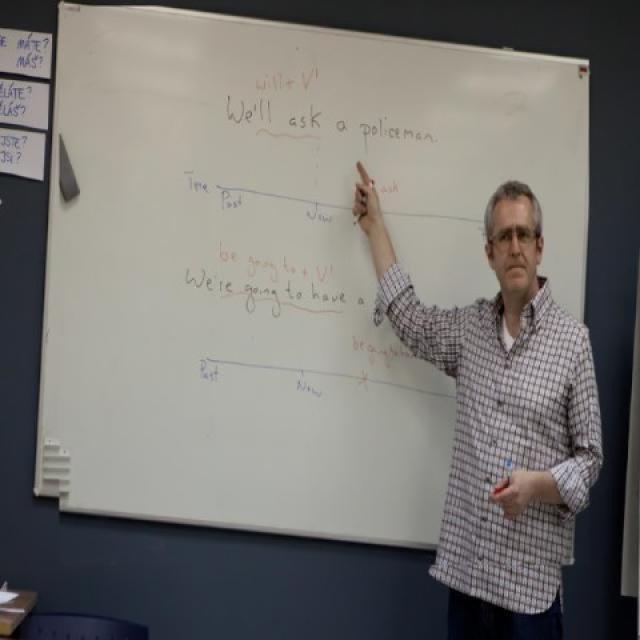 E MÁTE?
MÁŠ?
ĚLÁTE?
ĚLÁŠ?
JSTE?
JSI?
will + V¹
We'll ask a policeman.
Time
ask
Past
Now
be going to + V¹
We're going to have a
be going to
Past
Now